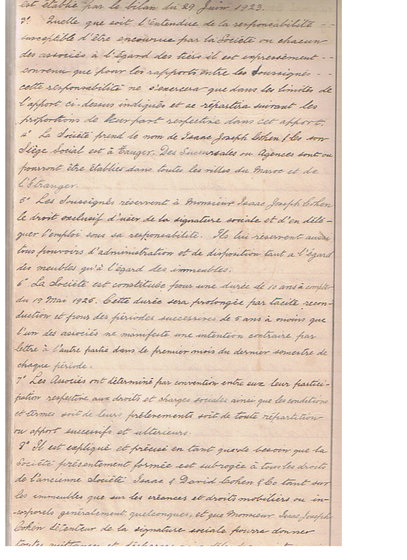 est établie par le bilan du 29 Juin 1923.
3° Quelle que soit l'étendue de la responsabilité
susceptible d'être encourue par la Société ou chacun
des associés à l'égard des tiers il est expressément
convenu que pour les rapports entre les Soussignés
cette responsabilité ne s'exercera que dans les limites de
l'apport ci-dessus indiqués et se répartira suivant les
proportions de leur part respective dans cet apport.
4° La Société prend le nom de Isaac Joseph Cohen & Co son
Siège Social est à Tanger. Des Succursales ou Agences sont ou
pourront être établies dans toutes les villes du Maroc et de
l'Etranger.
5° Les Soussignés réservent à Monsieur Isaac Joseph Cohen
le droit exclusif d'user de la signature sociale et d'en délé-
guer l'emploi sous sa responsabilité. Ils lui réservent aussi
tous pouvoirs d'administration et de disposition tant à l'égard
des meubles qu'à l'égard des immeubles.
6° La Société est constituée pour une durée de 10 ans à compter
du 19 Mai 1926. Cette durée sera prolongée par tacite recon-
duction et pour des périodes successives de 5 ans à moins que
l'un des associés ne manifeste une intention contraire par
lettre à l'autre partie dans le premier mois du dernier semestre de
chaque période.
7° Les Associés ont déterminé par convention entre eux leur partici-
pation respective aux droits et charges sociales ainsi que les conditions
et termes soit de leurs prélèvements soit de toute répartition
ou apport successifs et ultérieurs.
8° Il est expliqué et précisé en tant que de besoin que la
Société présentement formée est subrogée à tous les droits
de l'ancienne Société Isaac & David Cohen & Co tant sur
les immeubles que sur les créances et droits mobiliers ou in-
corporels généralement quelconques, et que Monsieur Isaac Joseph
Cohen détenteur de la signature sociale pourra donner
toutes quittances et décharges